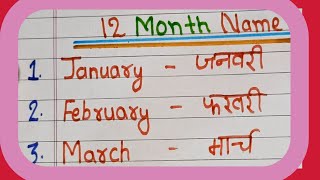 12 Month Name
1. January - जनवरी
2. February - फरवरी
3. March - मार्च